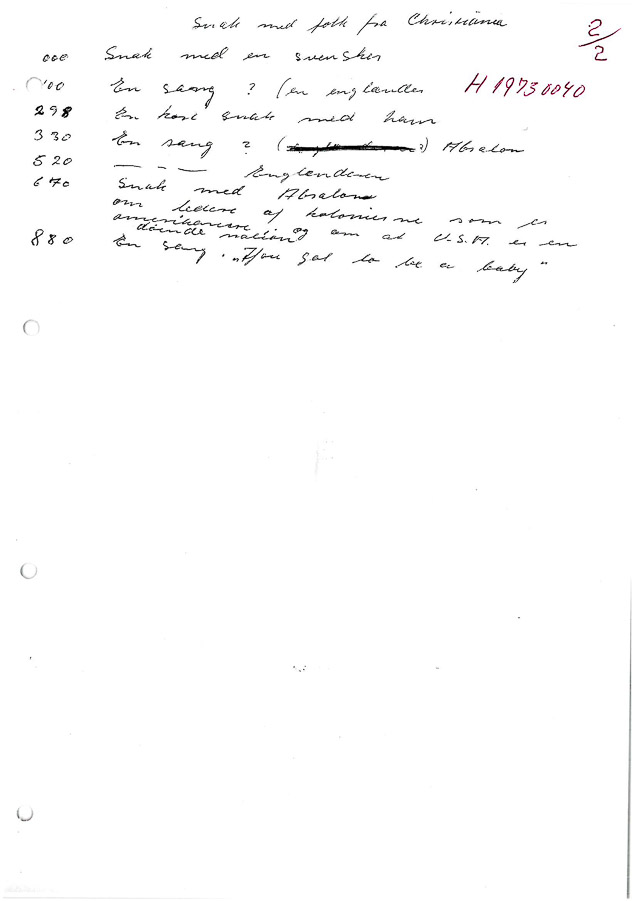 Snak med folk fra Christiania
2/2
000 Snak med en svensker
'00 En saang ? (en englænder H 19730040
298 En kort snak med ham
330 En sang ? ( ?) Absalon
520 — — — Englænderen
670 Snak med Absalon
om ledere af kolonierne som er
amerikanere og om at U.S.A. er en
døende nation
880 En sang. „You got to be a baby"